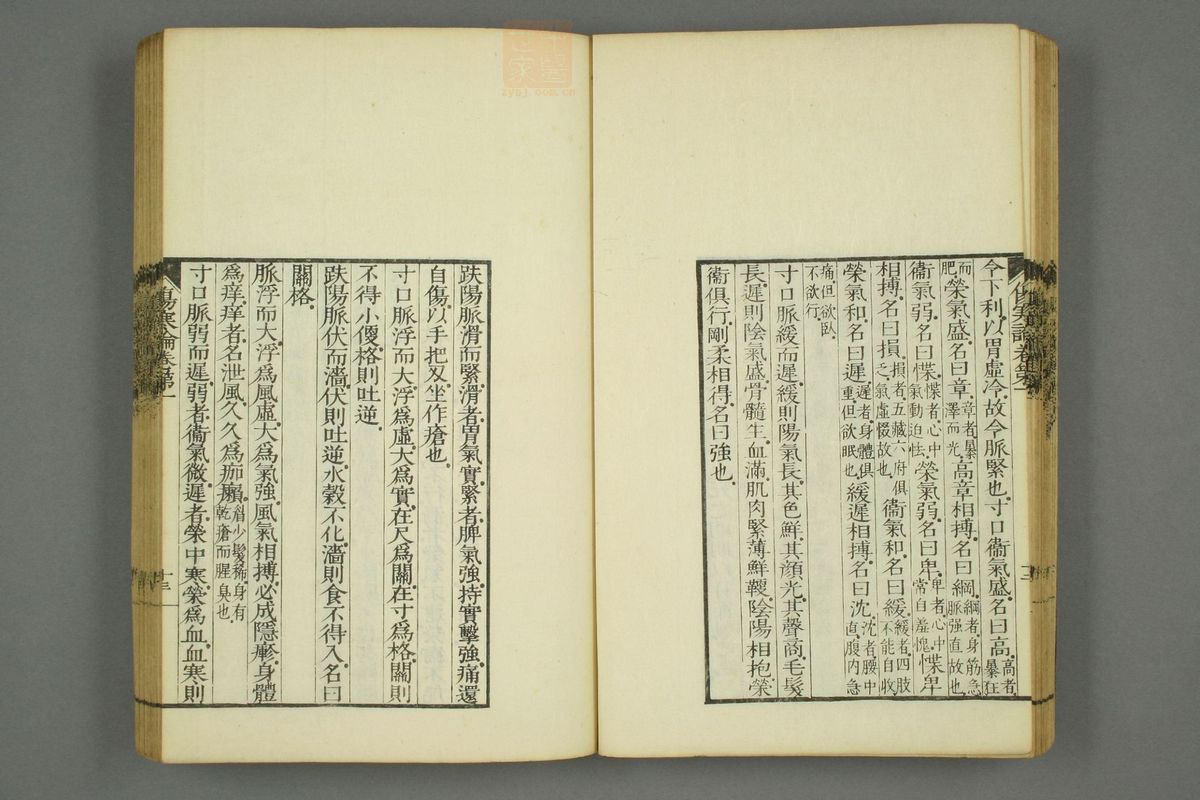 今下利以胃虛冷故令脈緊也寸口衞氣盛名曰高高者暴狂
而肥榮氣盛名曰章章者暴澤而光高章相搏名曰綱綱者身筋急脈强直故也
衞氣弱名曰惵惵者心中氣動迫怯榮氣弱名曰卑卑者心中常自羞愧惵卑
相搏名曰損損者五藏六府俱乏氣虛惙故也衞氣和名曰緩緩者四肢不能自收
榮氣和名曰遲遲者身體俱重但欲眠也緩遲相搏名曰沈沈者腰中直腹内急
痛但欲臥不欲行
寸口脈緩而遲緩則陽氣長其色鮮其顔光其聲商毛髮
長遲則陰氣盛骨髓生血滿肌肉緊薄鮮鞕陰陽相抱榮
衞俱行剛柔相得名曰強也
趺陽脈滑而緊滑者胃氣實緊者脾氣強持實擊強痛還
自傷以手把刄坐作瘡也
寸口脈浮而大浮爲虛大爲實在尺爲關在寸爲格關則
不得小便格則吐逆
趺陽脈伏而濇伏則吐逆水穀不化濇則食不得入名曰
關格
脈浮而大浮爲風虛大爲氣強風氣相搏必成隱㾦身體
爲痒痒者名泄風久久爲痂癩眉少髮稀身有乾瘡而腥臭也
寸口脈弱而遲弱者衞氣微遲者榮中寒榮爲血血寒則
傷寒論卷第一
十三
中醫世家
zysj.com.cn